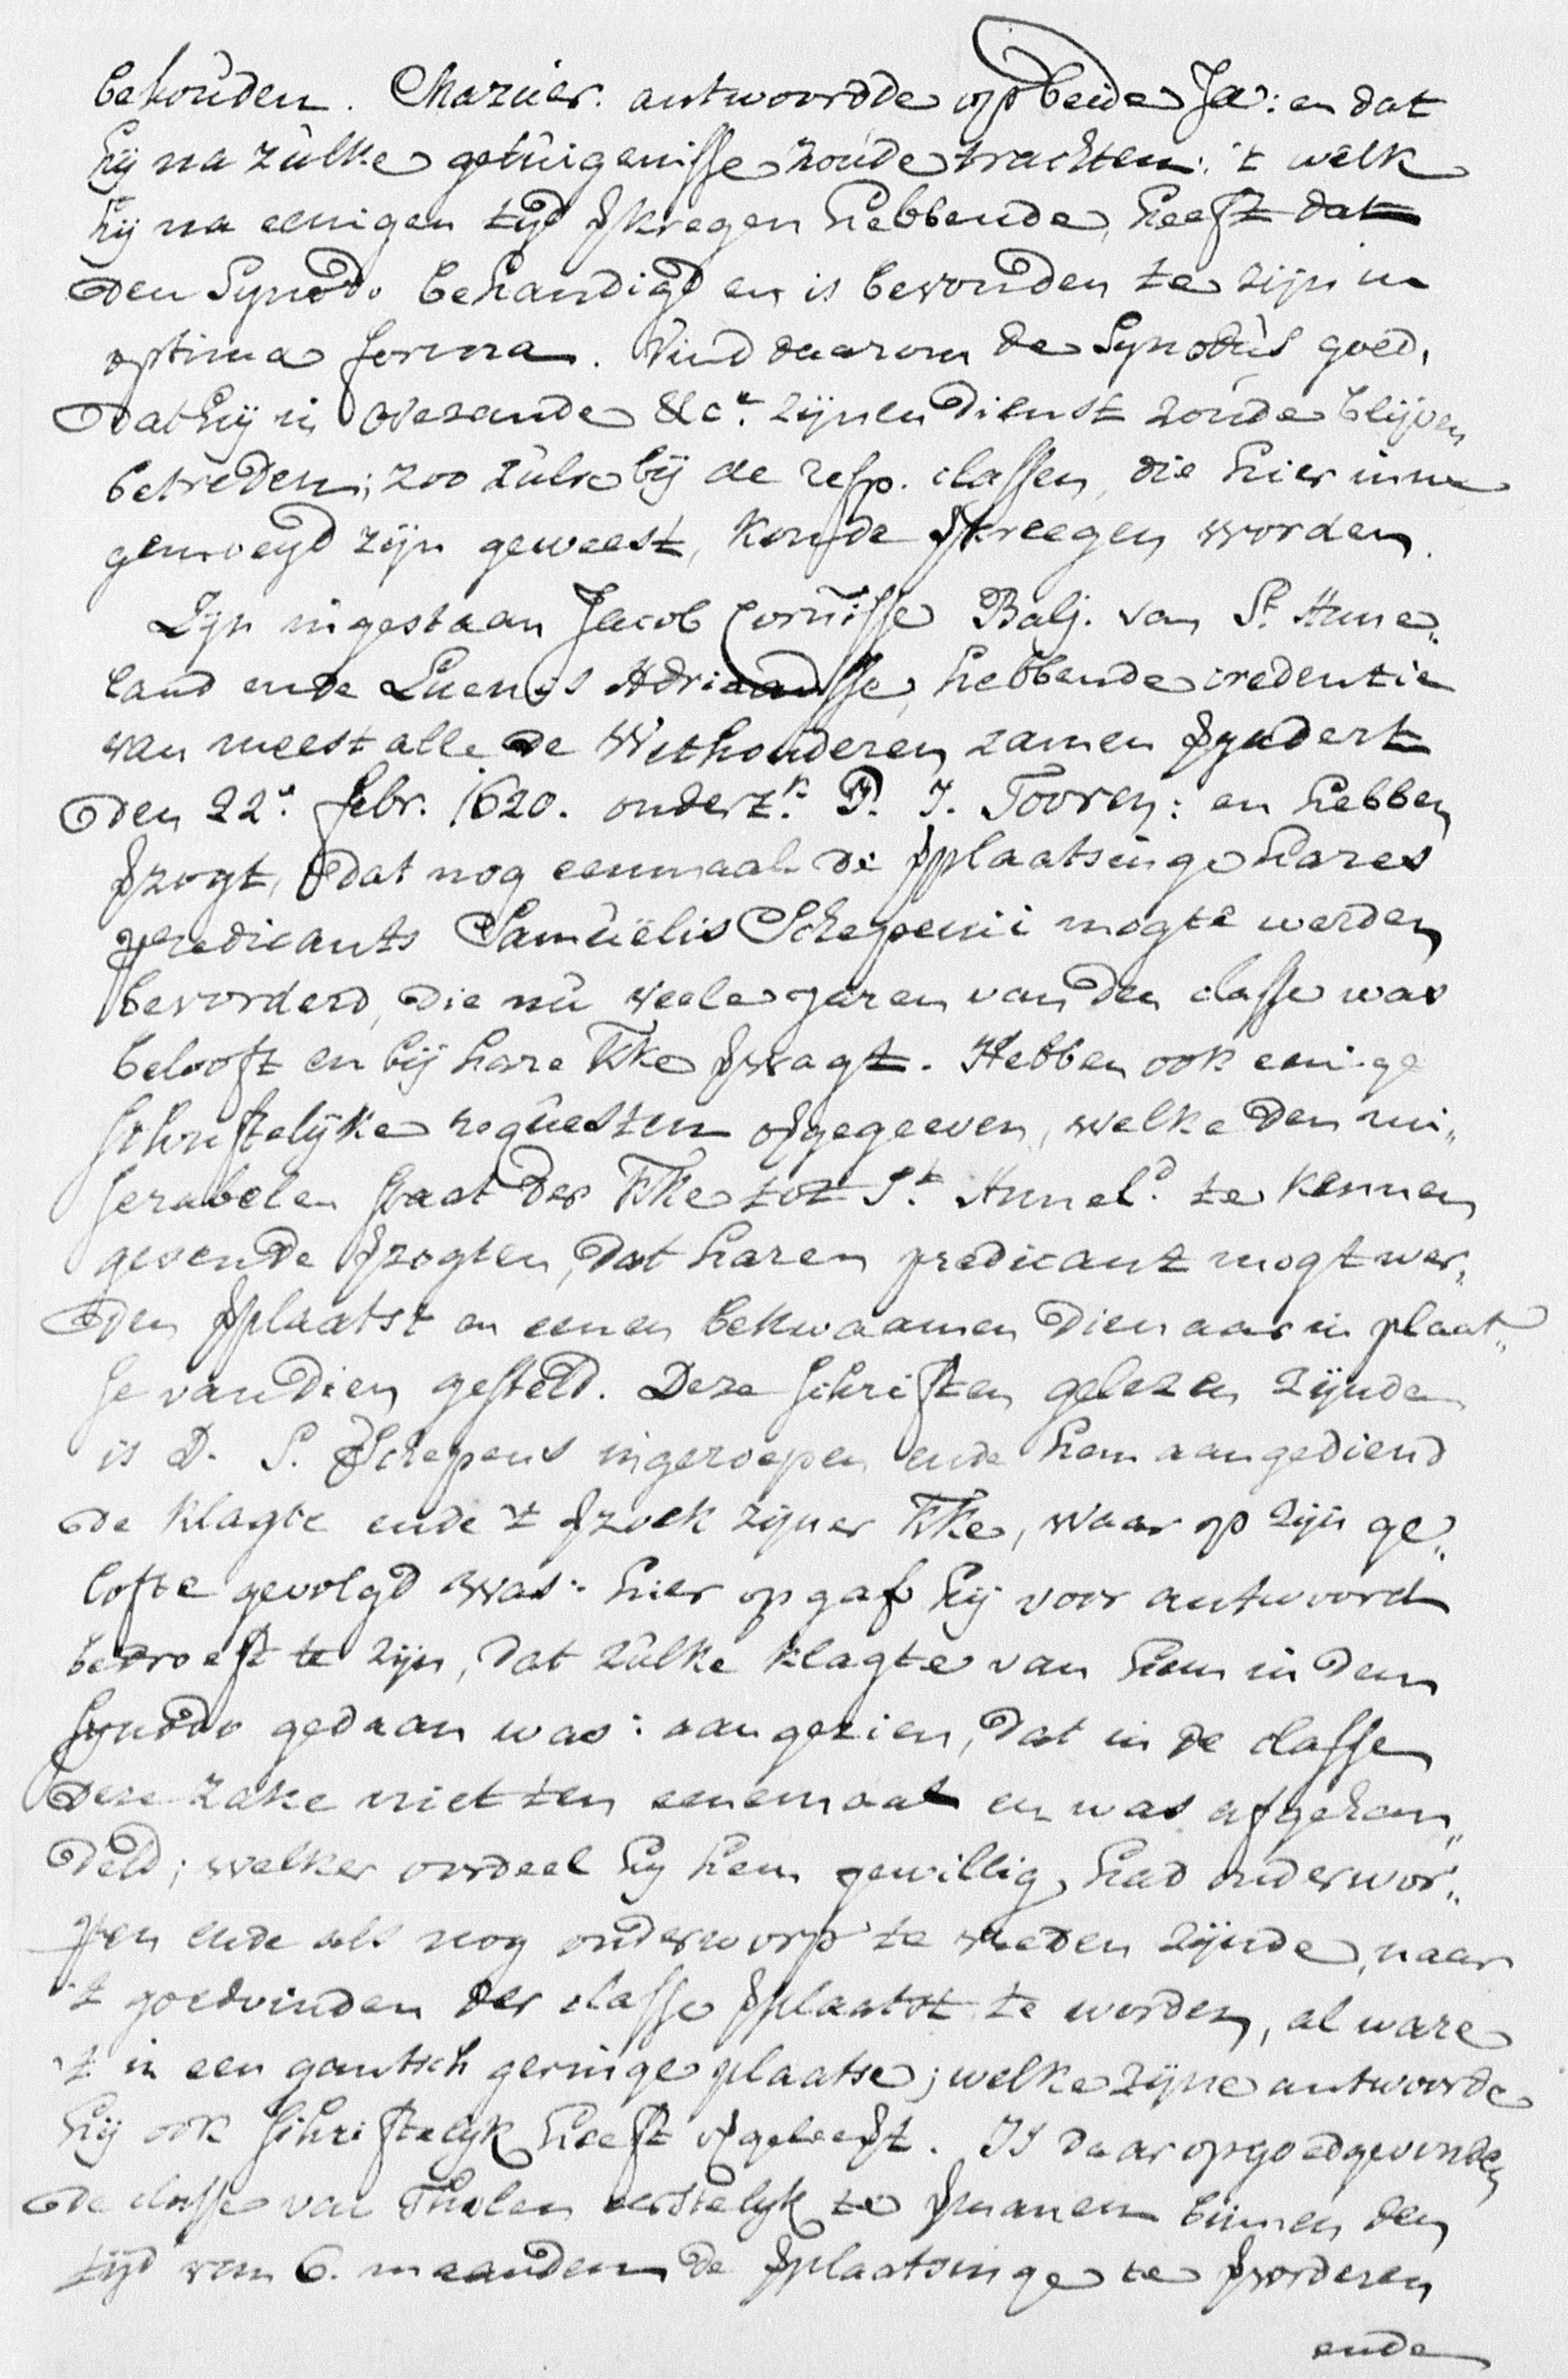 behouden. Marius. antwoordde op beide Ja: en dat
hij na zulke getuigenisse zoude trachten: 't welk
hij na eenigen tijd ꝟkregen hebbende, heeft dat
den Synodo behandigd en is bevonden te zijn in
optima forma. Vind daarom de Synodus goed,
dat hij in Ovezande &c. zijnen dienst zoude blijven
betreden; zoo zulx bij de resp. classen, die hier inne
gemoeyd zijn geweest, konde ꝟkreegen worden.
Zijn ingestaan Jacob Cornisse Balj. van St. Anne„
land ende Luenis Adriaansse, hebbende credentie
van meest alle de Wethouderen zamen ꝟgadert
den 22n. Febr. 1620. onderzk. P. J. Tooren: en hebben
ꝟzogt, dat nog eenmaal de ꝟplaatsinge hares
predicants Samuëlis Schepenii mogte werden
bevorderd, die nu veele jaren van den classe was
belooft en bij hare Kke ꝟwagt. Hebben ook eenige
schriftelijke requesten opgegeeven, welke den mi„
serabelen staat der Kke tot St. Anneld. te kennen
gevende ꝟzogten, dat haren predicant mogt wer„
den ꝟplaatst en eenen bekwaamen dienaar in plaat„
se van dien gesteld. Deze schriften gelezen zijnde
is D. S. Schepens ingeroepen ende hem aangediend
de klagte ende 't ꝟzoek zijner Kke, waar op zijn ge„
lofte gevolgd was: hier op gaf hij voor antwoord
bedroeft te zijn, dat zulke klagte van hem in den
Synodo gedaan was: aangezien, dat in de classe
deze zake niet ten eenemaal en was afgehan„
deld; welker oordeel hij hem gewillig had onderwor„
pen ende als nog onderworp te vreden zijnde, naar
't goedvinden der classe ꝟplaatst te worden, al ware
't in een gantsch geringe plaatse; welke zijne antwoorde
hij ook schriftelijk heeft opgeleeft. Is daar op goedgevonden
de classe van Tholen ernstelijk te ꝟmanen binnen den
tijd van 6. maanden de ꝟplaatsinge te ꝟvorderen
ende